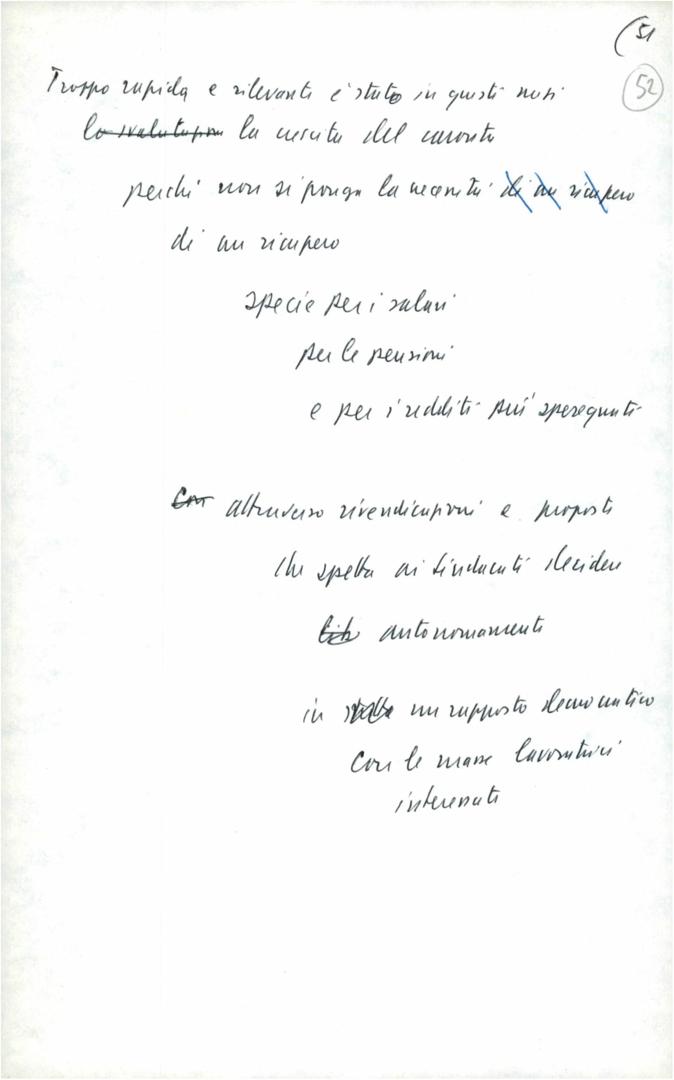 51
52
Troppo rapida e rilevante è stata in questi mesi
la svalutazione la crescita del carovita
perché non si ponga la necessità di un ricupero
di un ricupero
specie per i salari
per le pensioni
e per i redditi più sperequati
Con attraverso rivendicazioni e proposte
che spetta ai sindacati decidere
autonomamente
in un rapporto democratico
con le masse lavoratrici
interessate